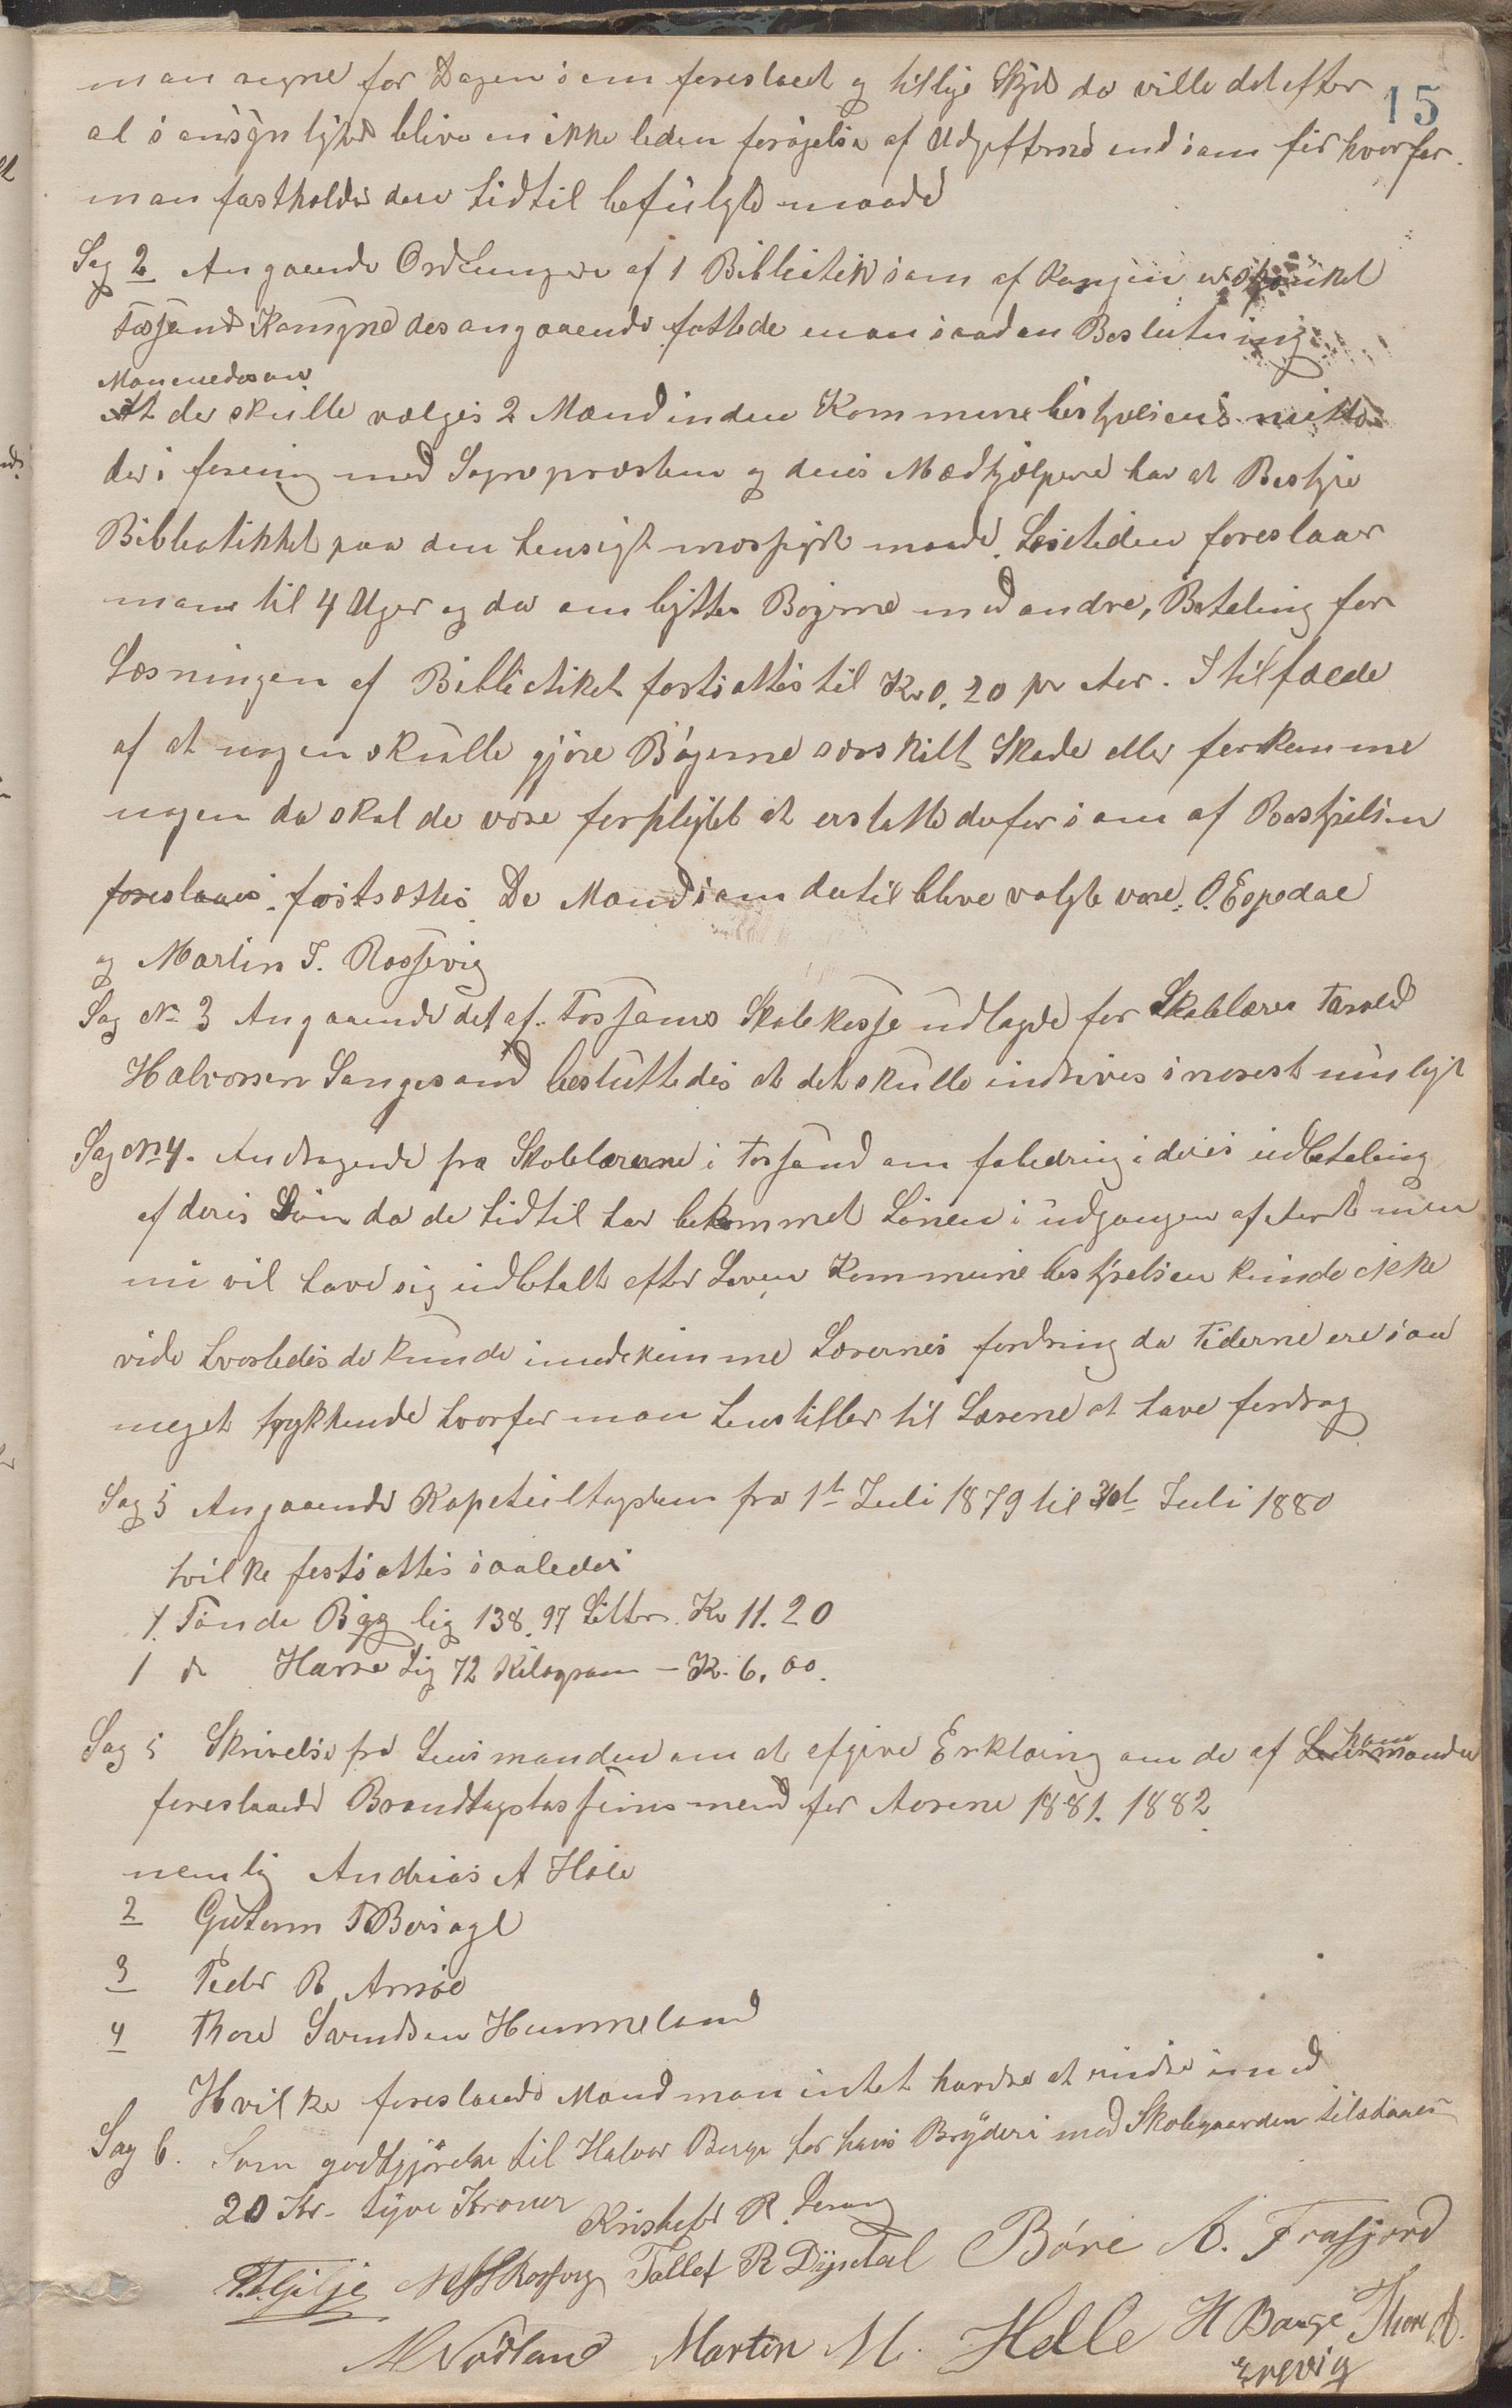 15
man regne for Dagen som foreslaaet og tillige Skyds da ville det efter
al sansynlighed blive en ikke liden forøgelse af Udgifterne end som før hvorfor
man fastholder den hidtil befulgte maade
Sag 2 Angaaende Ordningen af 1 Bibliotek som af Kongen er skjænket
Fossand Kamgne desangaaende fattede man saadan Beslutning
Manenedesaw
At der skulle vælges 2 Mænd inden Kommunebestyrelsens mitte
der i forening med Sognepræsten og deris Medhjælpere har at Bestyre
Bibliotikket paa den hensigtmæssigste maade. Læsetiden foreslaar
man til 4 Uger og da ombytte Bøgerne med andre, Betaling for
Læsningen af Bibliotiket fastsættes til Kr 0.20 pr Aar. I tilfælde
af at nogen skulle gjøre Bøgerne særskilt Skade eller forkomme
nogen da skal de være forpligtet at erstatte derfor som af Bestyrelsen
foreslaaes fastsættes. De Mænd som dertil bleve valgte vare: O. Espedal
og Martin T. Rossevig
Sag No 3 Angaaende det af Fossans Skolekasse udlagde for Skolelærer Tarald
Halvorsen Sangesand besluttedes at det skulle inddrives snarest muligt
Sag No 4. Andragende fra Skolelærerne i Fossand om forbedring i deris udbetaling
af deris Løn da de hidtil har bekommet Lønen i udgangen af Aaret men
nu vil have sig udbetalt efter Loven Kommunebestyrelsen kunde ikke
vide hvorledes de kunde imødekomme Lærernes fordring da Tiderne ere saa
meget trykkende hvorfor man henstiller til Lærene at have fordrag
Sag 5 Angaaende Kapeteiltagsten fra 1st Juli 1879 til 30t Juli 1880
hvilke festsættes saaledes
1. Tønde Bygg lig 138.97 Litter. Kr 11.20
1 do Havre Lig 72 Kilogram - Kr. 6.00.
Sag 5 Skrivelse fra Lensmanden om at afgive Erklæring om de af Lensmanden ham
foreslaaede Brandtagstasjonsmend for Aarene 1881. 1882.
nemlig Andrias A Hole
2 Gutorm T Bersagl
3 Peder R Amsøe
4 Thore Svendsen Hummeland
Hvilke foreslaaede Mænd man intet havde at indre imod
Sag 6. Som godtgjørelse til Halvor Berge for hans Bryderi med Skolegaarden tilstaaes
20 Kr. tyve Kroner
Kristofer R. Perang
T. T. Gilje Tollef R Dyrdal Børe A. Frafjord
M Nødland Martin M. Helle H Barge Thore A.
Erevig